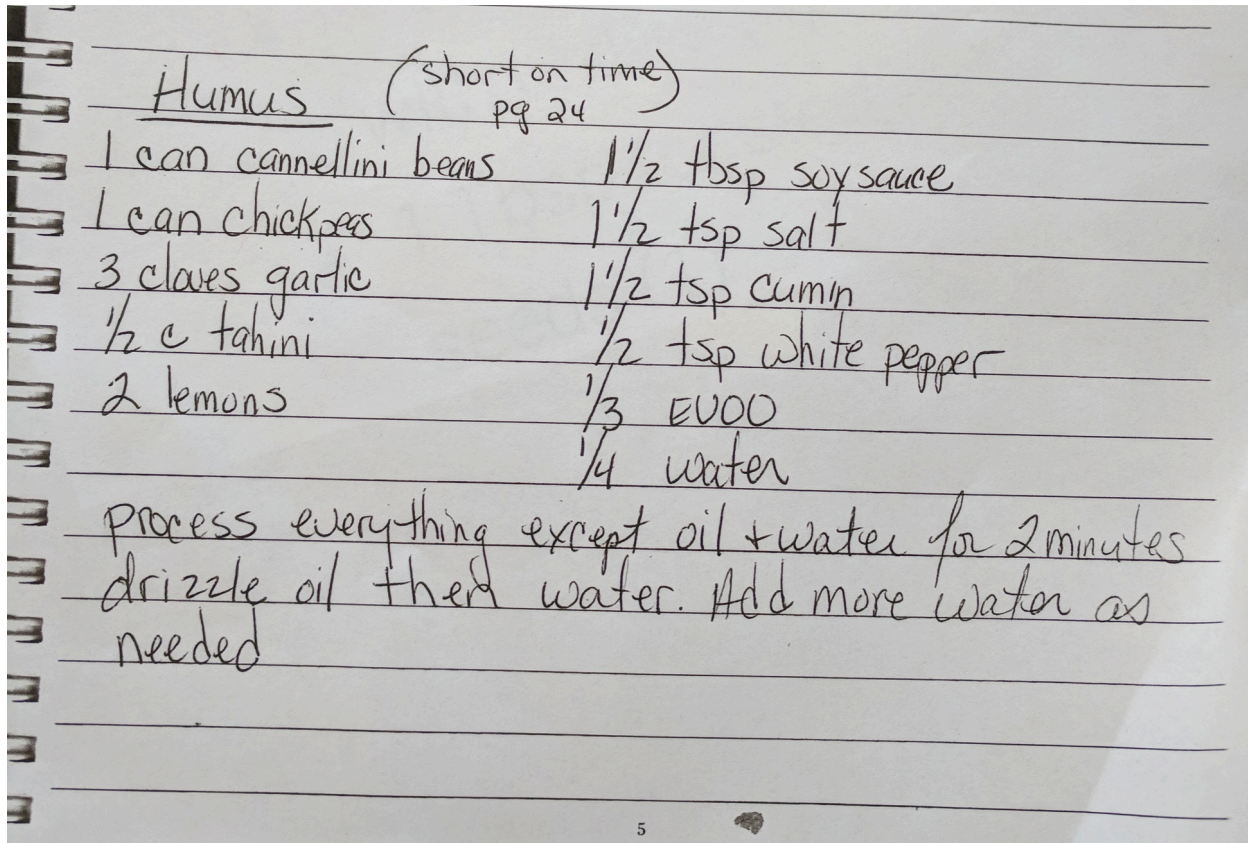 Humus (short on time)
pg 24
1 can cannellini beans
1 can chickpeas
3 cloves garlic
1/2 c tahini
2 lemons
1 1/2 tbsp soy sauce
1 1/2 tsp salt
1 1/2 tsp cumin
1/2 tsp white pepper
1/3 EVOO
1/4 water
process everything except oil + water for 2 minutes
drizzle oil then water. Add more water as
needed
5